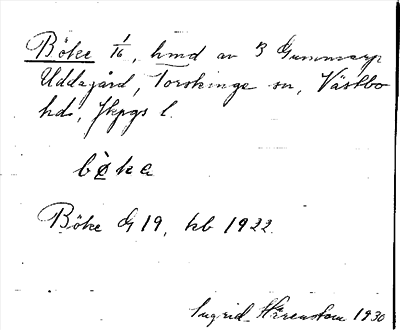 Böke 1/16, hmd av 3 Gummarp
Uddagård, Torskinge sn, Västbo
hd, Jkpgs l.
bö̀ke
Böke G 19, kb 1922.
Ingrid Härenstam 1930